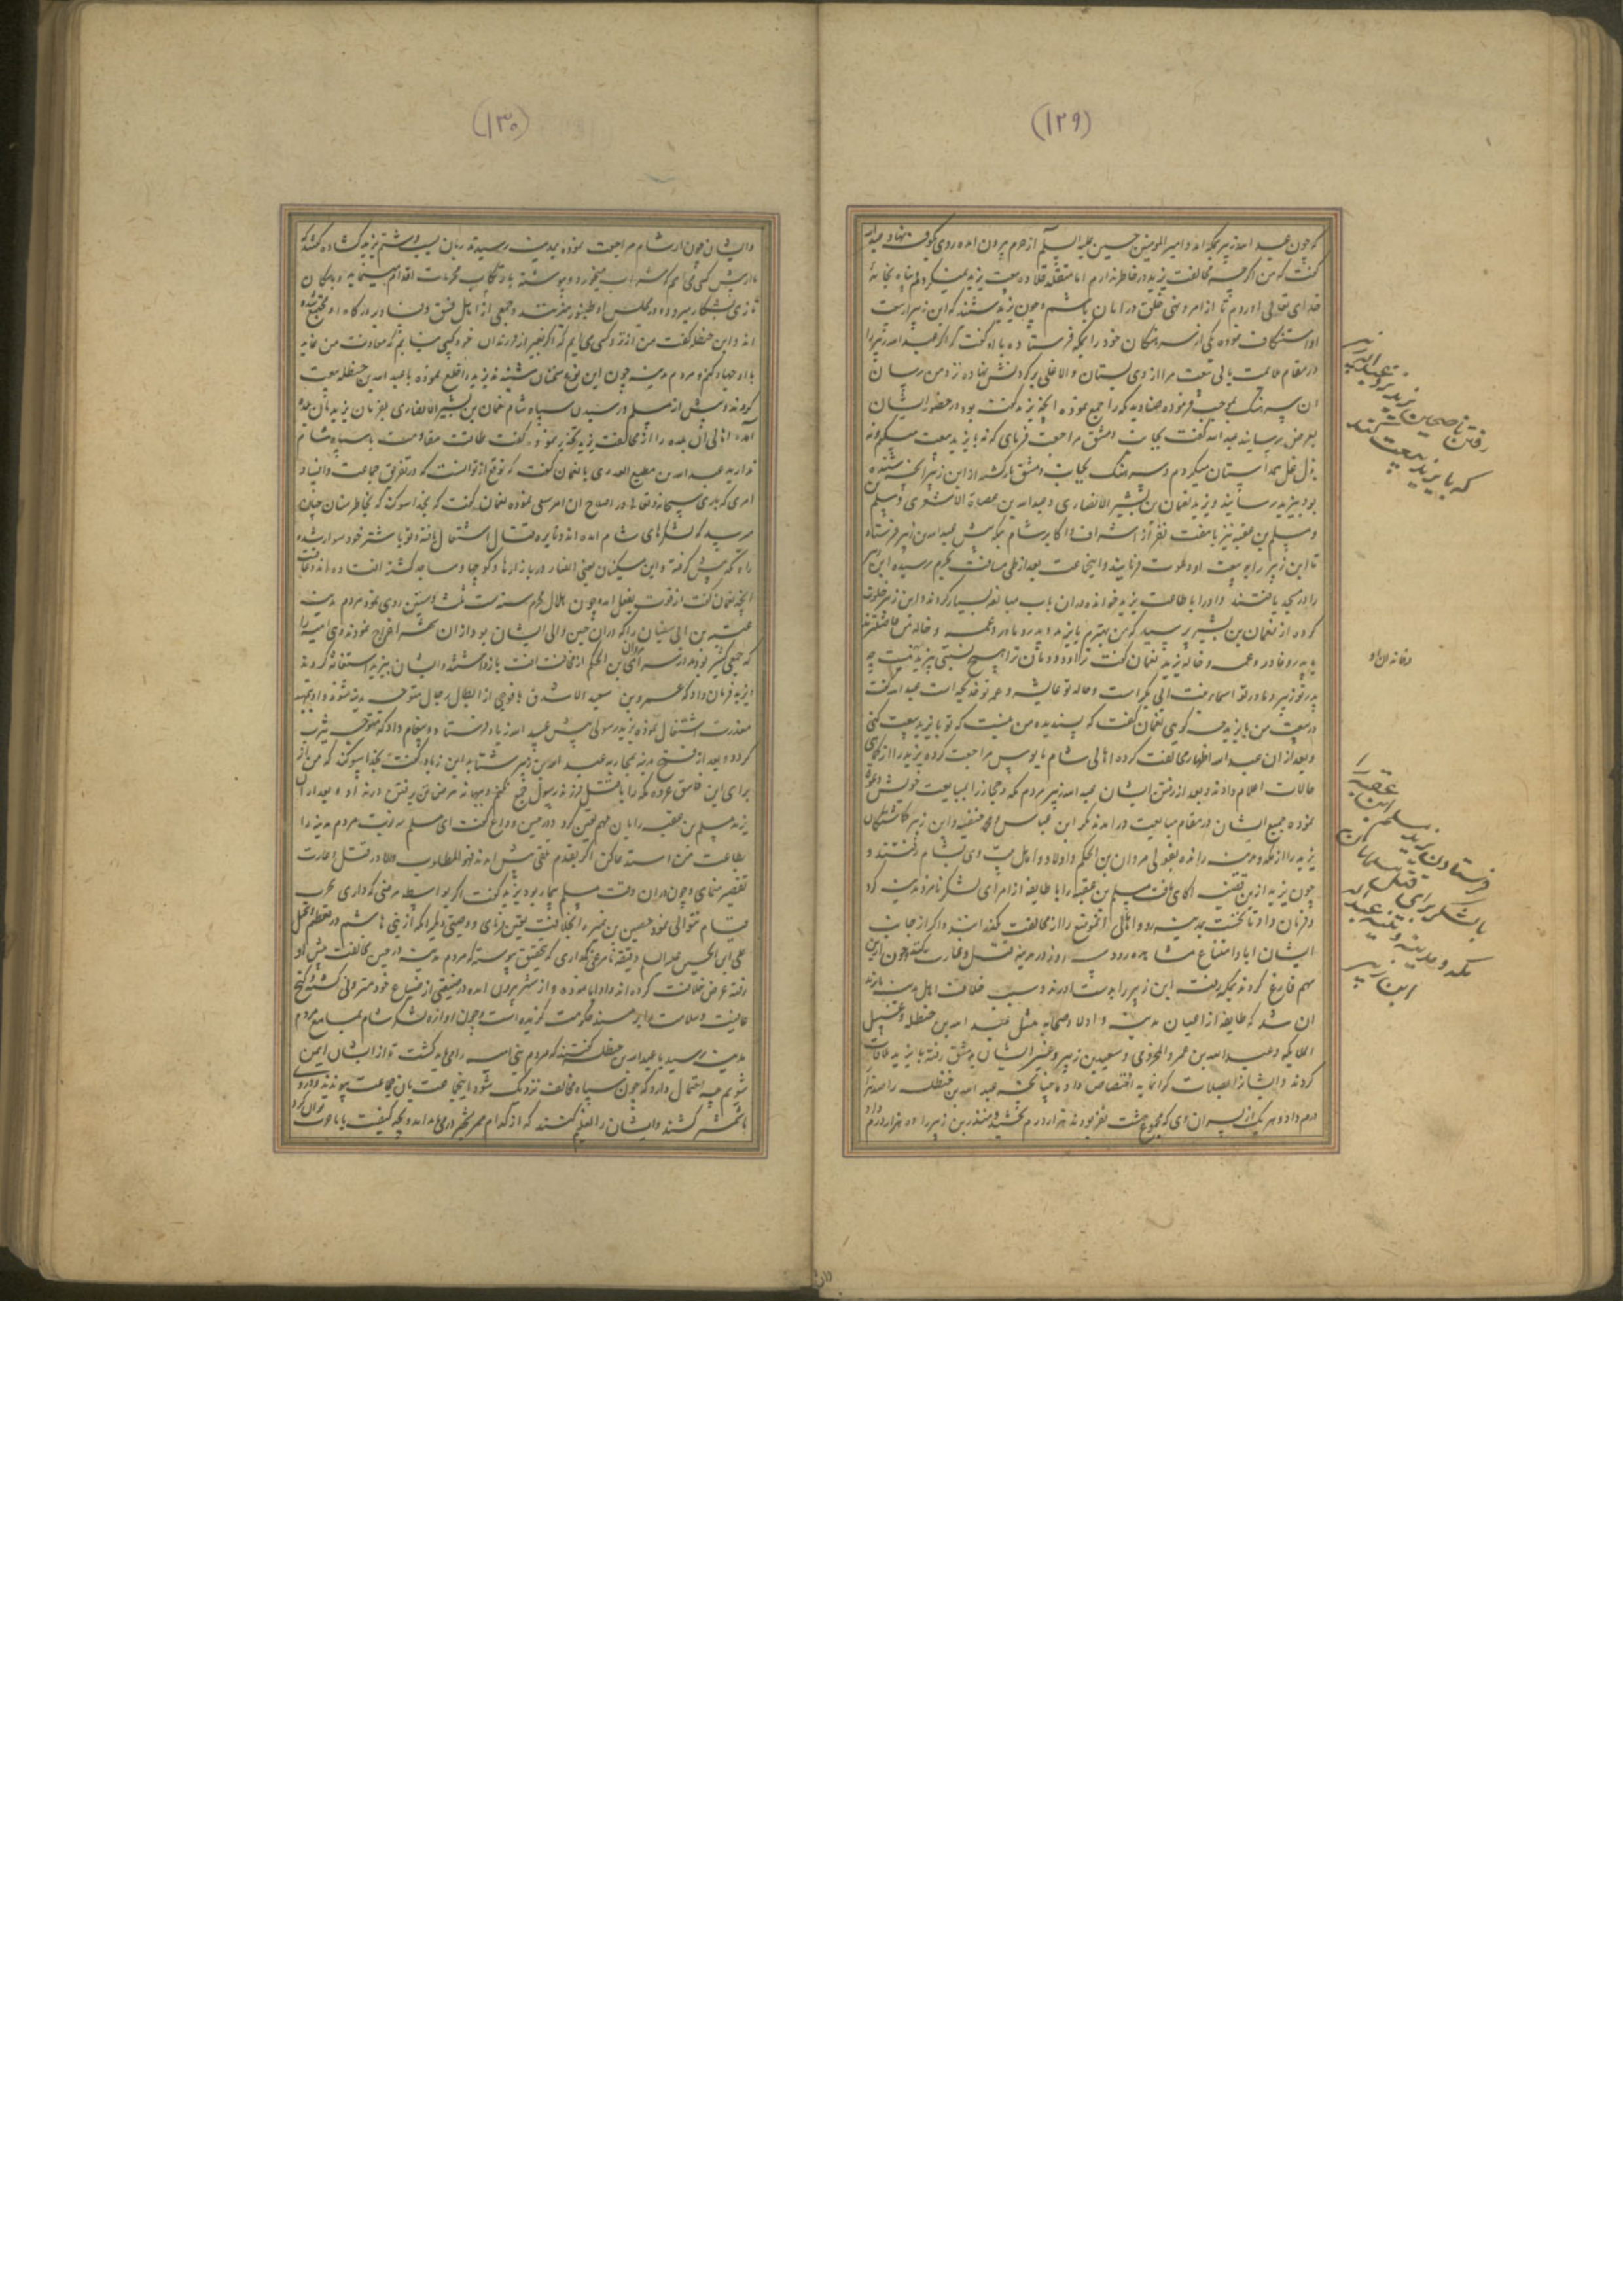 (١٢٩)
که چون عبد الله زبیر بمکه آمد و امیر المومنین حسین علیه السلم از حرم بیرون آمده روی بکوفه نهاد و عبدالله
گفت که من اگرچه مخالفت یزید در خاطر ندارم اما متقلد قلاده بیعت یزید نمیگردم پناه بخانه
خدای تعالی آوردم تا از امر و نهی خلق در امان باشم و چون یزید شنید که ابن زبیر از بیعت
او استنکاف نموده یکی از سرهنگان خود را بمکه فرستاده باو گفت که اگر عبد الله زبیر را
در مقام ملایمت یابی بیعت مرا از وی بستان والا غلی بر گردنش نهاده نزد من رسان
آن سرهنگ بموجب فرموده صنادید مکه را جمع نموده آنچه یزید گفته بود در حضور ایشان
بعرض رسانید عبد الله گفت بجانب دمشق مراجعت فرمای که نه با یزید بیعت میکنم و نه
بذل غل همداستان میگردم و سرهنگ بجانب دمشق بازگشته از ابن زبیر آنچه شنیده
بود بیزید رسانید و یزید نعمان بن بشیر الانصاری و عبدالله بن عصاة الاشعری و مسلم
و مسلم بن عقبه نیز با هفت نفر از اشراف و اکابر شام بمکه پیش عبدالله بن زبیر فرستاد
تا ابن زبیر را به بیعت او دعوت فرمایند و اینجماعت بعد از طی مسافت بحرم رسیده ابن زبیر
را در مسجد یافتند و او را با طاعت یزید خوانده در آن باب مبالغه بسیار کردند و ابن زبیر خلوت
کرده از نعمان بن بشیر پرسید که من بهترم یا یزید و پدر و مادر و عمه و خاله من فاضلترند
یا پدر و مادر و عمه و خاله یزید نعمان گفت ترا و دودمان ترا هیچ نسبتی بیزید نیست چه
پدر تو زبیر و مادر تو اسماء بنت ابی بکر است و خاله تو عایشه و عمه تو خدیجه است عبد الله گفت
در بیعت من با یزید چه گوئی نعمان گفت که پسندیده من نیست که تو با یزید بیعت کنی
و بعد از آن عبد الله اظهار مخالفت کرده اهالی شام مایوس مراجعت کرده یزید را از
حالات اعلام دادند و بعد از رفتن ایشان عبد الله زبیر مردم مکه و حجاز را بمبایعت خویش دعوت
نموده جمیع ایشان در مقام مبایعت در آمدند مگر ابن عباس و محمد حنفیه و ابن زبیر گماشتگان
یزید را از مکه و مدینه رانده بقولی مروان بن الحکم و اولاد و اهل بیت وی بشام رفتند و
چون یزید ازین قضیه آگاهی یافت مسلم بن عقبه را با طایفه از امرای لشکر نامزد مدینه کرد
و فرمان داد تا نخست بمدینه رود و اهالی آنموضع را از مخالفت بگذرانند و اگر از جانب
ایشان ابا و امتناع مشاهده رود سه روز در مدینه قتل و غارت کنند و چون ازین
مهم فارغ گردند بمکه رفته ابن زبیر را بدست آورند و سبب خلافت اهل مدینه با یزید
آن شد که طایفه از اعیان مدینه و اولاد صحابه مثل عبد الله بن حنظله غسیل
الملائکه و عبد الله بن عمرو المخزومی و سعید بن زبیر و غیر ایشان بدمشق رفته با یزید ملاقات
کردند و ایشانرا بصلات گرانمایه اختصاص داد چنانچه عبد الله بن حنظله را صد هزار
درم داد و هر یک از پسران وی که مجموع هشت نفر بودند هزار درم بخشید و منذر بن زبیر را ده هزار درم داد
رفتن ناصحان یزید نزد عبدالله زبیر
که با یزید بیعت کند
فرستادن یزید مسلم ابن عقبه را
با لشکر برای قتل مسلمانان
مکه و مدینه و عبدالله
ابن زبیر
(١٣٠)
و ایشان چون از شام مراجعت نموده بمدینه رسیدند زبان بسب و شتم یزید گشاده گفتند
ما از پیش کسی می‌آئیم که شراب میخورد و پیوسته بارتکاب محرمات اقدام مینماید و با سگان
تازی بشکار میرود و در مجلس او طنبور میزنند و جمعی از اهل فسق و فساد بر درگاه او مجتمع شده
اند و ابن حنظله گفت من از نزد کسی می‌آیم که اگر بغیر از فرزندان خود کسی نیابم که معاونت من نماید
با او جهاد کنم و مردم مدینه چون این نوع سخنان شنیدند یزید را خلع نموده با عبد الله بن حنظله بیعت
کردند و پیش از مسلم و رسیدن سپاه شام نعمان بن بشیر الانصاری بفرمان یزید بآن بلده
آمده اهالی آن بلده را از مخالفت یزید تحذیر نمود و گفت طاقت مقاومت با سپاه شام
ندارید عبدالله بن مطیع العدوی با نعمان گفت که توقع از تو آنست که در تفریق جماعت و افساد
امری که باری سبحانه و تعالی در اصلاح آن امر سعی نموده نعمان گفت که بخدا سوگند که بخاطر من چنان
میرسد که لشکرهای شام آمده‌اند و نایره قتال اشتعال یافته و تو با شتر خود سوار شده
راه مکه پیش گرفته و این مسکینان یعنی انصار در بازارها و کوچها و مساجد کشته افتاده‌اند
آنچه نعمان گفت از قوت بفعل آمد و چون هلال محرم سنه ثلث و ستین روی نمود مردم مدینه
عثمان بن ابی سفیان را که در آن حین والی ایشان بود از آن شهر اخراج نمودند و بنی امیه را
که جمعی کثیر بودند در سرای مروان بن الحکم از مخالفت بازداشتند و ایشان بیزید استغاثه کردند
یزید فرمان داد که عمرو بن سعید الاشدق با فوجی از ابطال رجال متوجه مدینه شوند و او بتمهید
معذرت اشتغال نموده یزید رسولی پیش عبید الله زیاد فرستاد و پیغام داد که متوجه یثرب
گردد و بعد از فتح مدینه بمحاربه عبد الله بن زبیر شتابد ابن زیاد گفت بخدا سوگند که من از
برای این فاسق غزوه مکه را با قتل فرزند رسول جمع نکنم و ببهانه مرض تن برفتن در نداد و بعد از آن
یزید مسلم بن عقبه را باین مهم تعیین کرد و در حین وداع گفت ای مسلم سه نوبت مردم مدینه را
بطاعت من استدعا کن اگر بقدم تلقی پیش آمدند فهو المطلوب والا در قتل و غارت
تقصیر منمای و چون در آن وقت مسلم بیمار بود یزید گفت اگر بواسطه مرضی که داری بحرب
قیام نتوانی نمود حصین بن نمیر را بخلافت تعیین فرمای و وصیتی دیگر آنکه از بنی هاشم در تعظیم و تبجیل
علی ابن الحسین علیه السلم دقیقه نامرعی نگذاری که بتحقیق پیوسته که مردم مدینه در حین مخالفت پیش او
رفته عرض خلافت کرده‌اند و او ابا نموده و از شهر بیرون آمده در ضیعتی از ضیاع خود منزوی گشته و کنج
عافیت و سلامت را بر مسند حکومت گزیده است و چون آوازه لشکر شام بمسامع مردم
مدینه رسید با عبدالله بن حنظله گفتند که مردم بنی امیه را می‌باید کشت تا از ایشان ایمن
شویم چه احتمال دارد که چون سپاه مخالف نزدیک شود اینجماعت بآن جماعت پیوندند و